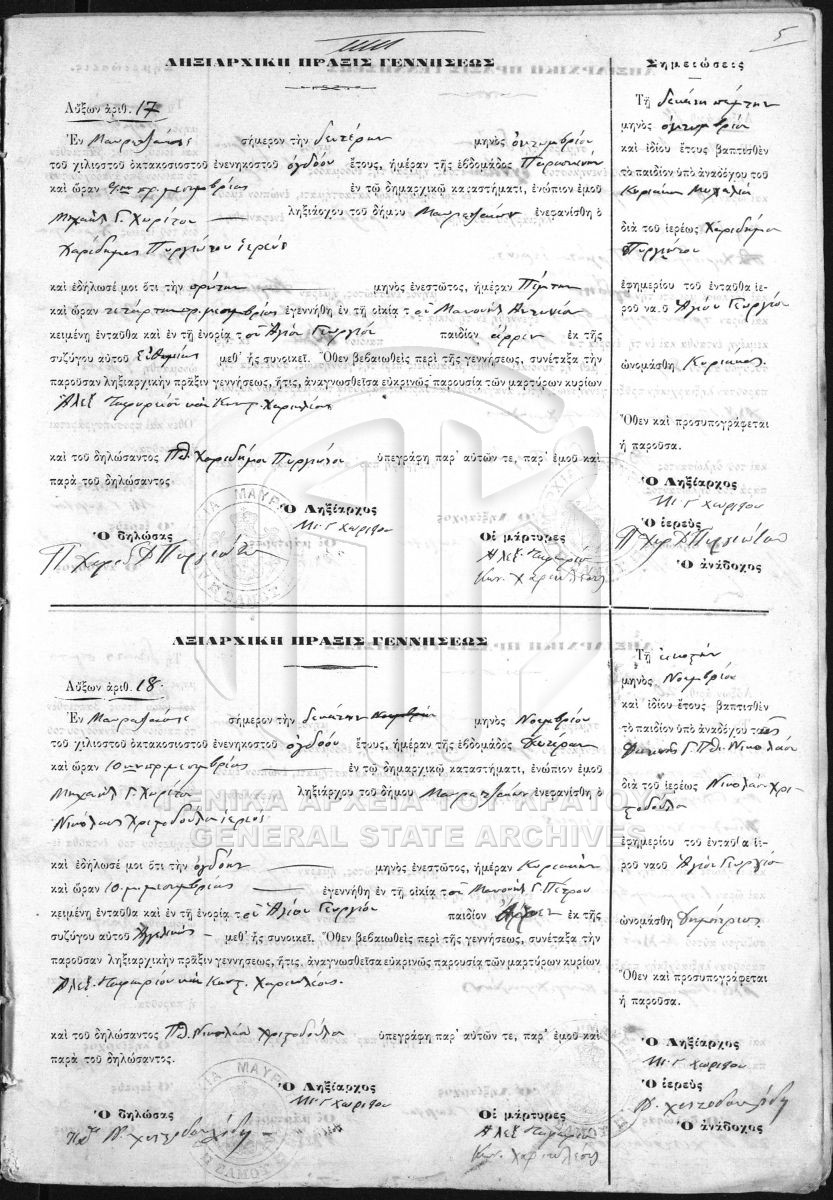 5
ΛΗΞΙΑΡΧΙΚΗ ΠΡΑΞΙΣ ΓΕΝΝΗΣΕΩΣ
Αὔξων ἀριθ. 17
Ἐν σήμερον τὴν δευτέραν μηνὸς ὀκτωμβρίου
τοῦ χιλιοστοῦ ὀκτακοσιοστοῦ ἐνενηκοστοῦ ὀγδόου ἔτους, ἡμέραν τῆς ἑβδομάδος Παρασκευὴν
καὶ ὥραν πρ. μεσημβρίας ἐν τῷ δημαρχικῷ καταστήματι, ἐνώπιον ἐμοῦ
Μιχαὴλ Γ. Χωρίτου ληξιάρχου τοῦ δήμου ἐνεφανίσθη ὁ
Χαρίδημος Πυργιώτου ἱερεὺς
καὶ ἐδήλωσέ μοι ὅτι τὴν πρώτην μηνὸς ἐνεστῶτος, ἡμέραν Πέμπτην
καὶ ὥραν τετάρτην πρ. μεσημβρίας ἐγεννήθη ἐν τῇ οἰκίᾳ τοῦ Μανουὴλ Ἀντωνίου
κειμένῃ ἐνταῦθα καὶ ἐν τῇ ἐνορίᾳ τοῦ Ἁγίου Γεωργίου παιδίον ἄρρεν ἐκ τῆς
συζύγου αὐτοῦ Εὐθυμίας μεθ' ἧς συνοικεῖ. Ὅθεν βεβαιωθεὶς περὶ τῆς γεννήσεως, συνέταξα τὴν
παροῦσαν ληξιαρχικὴν πρᾶξιν γεννήσεως, ἥτις, ἀναγνωσθεῖσα εὐκρινῶς παρουσίᾳ τῶν μαρτύρων κυρίων
Ἀλεξ. καὶ Κωνστ. Χαρικλέους
καὶ τοῦ δηλώσαντος Πδ. Χαριδήμου Πυργιώτου ὑπεγράφη παρ' αὐτῶν τε, παρ' ἐμοῦ καὶ
παρὰ τοῦ δηλώσαντος
Ὁ Ληξίαρχος
Μι. Γ. Χωρίτου
Ὁ δηλώσας
Π Χαρ Δ Πυργιώτου
Οἱ μάρτυρες
Ἀλεξ
Κων. Χαρικλέους
Σημειώσεις
Τῇ δεκάτῃ πέμπτῃ
μηνὸς Ὀκτωμβρίου
καὶ ἰδίου ἔτους βαπτισθὲν
τὸ παιδίον ὑπὸ ἀναδόχου τοῦ
Κυριάκου
διὰ τοῦ ἱερέως Χαριδήμου
Πυργιώτου
ἐφημερίου τοῦ ἐνταῦθα ἱε-
ροῦ ναοῦ Ἁγίου Γεωργίου
ὠνομάσθη Κυριακος.
Ὅθεν καὶ προσυπογράφεται
ἡ παροῦσα.
Ὁ Ληξίαρχος
Μι Γ Χωρίτου
Ὁ ἱερεὺς
Π Χαρ Δ Πυργιώτου
Ὁ ἀνάδοχος
ΛΞΙΑΡΧΙΚΗ ΠΡΑΞΙΣ ΓΕΝΝΗΣΕΩΣ
Αὔξων ἀριθ. 18.
Ἐν σήμερον τὴν δεκάτην μηνὸς Νοεμβρίου
τοῦ χιλιοστοῦ ὀκτακοσιοστοῦ ἐνενηκοστοῦ ὀγδόου ἔτους, ἡμέραν τῆς ἑβδομάδος Δευτέραν
καὶ ὥραν 10 πρ. μεσημβρίας ἐν τῷ δημαρχικῷ καταστήματι, ἐνώπιον ἐμοῦ
Μιχαὴλ Γ. Χωρίτου ληξιάρχου τοῦ δήμου ἐνεφανίσθη ὁ
Νικόλαος Χριστοδούλου ἱερεὺς
καὶ ἐδήλωσέ μοι ὅτι τὴν ὀγδόην μηνὸς ἐνεστῶτος, ἡμέραν Κυριακὴν
καὶ ὥραν 10 μ. μεσημβρίας ἐγεννήθη ἐν τῇ οἰκίᾳ τοῦ Μανουὴλ Γ. Πέτρου
κειμένῃ ἐνταῦθα καὶ ἐν τῇ ἐνορίᾳ τοῦ Ἁγίου Γεωργίου παιδίον ἄρρεν ἐκ τῆς
συζύγου αὐτοῦ μεθ' ἧς συνοικεῖ. Ὅθεν βεβαιωθεὶς περὶ τῆς γεννήσεως, συνέταξα τὴν
παροῦσαν ληξιαρχικὴν πρᾶξιν γεννησεως, ἥτις, ἀναγνωσθεῖσα εὐκρινῶς παρουσίᾳ τῶν μαρτύρων κυρίων
Ἀλεξ. καὶ Κωνστ. Χαρικλέους.
καὶ τοῦ δηλώσαντος Πδ. Νικολάου Χριστοδούλου ὑπεγράφη παρ' αὐτῶν τε, παρ' ἐμοῦ καὶ
παρὰ τοῦ δηλώσαντος.
Ὁ Ληξίαρχος
Μι Γ Χωρίτου
Ὁ δηλώσας
Ν. Χριστοδουλίδης
Οἱ μάρτυρες
Ἀλεξ
Κων. Χαρικλέους
Τῇ εἰκοστῇ
μηνὸς Νοεμβρίου
καὶ ἰδίου ἔτους βαπτισθὲν
τὸ παιδίον ὑπὸ ἀναδόχου
Νικολάου
διὰ τοῦ ἱερέως Νικολάου Χρι-
στοδούλου
ἐφημερίου τοῦ ἐνταῦθα ἱε-
ροῦ ναοῦ Ἁγίου Γεωργίου
ὠνομάσθη Δημήτριος
Ὅθεν καὶ προσυπογράφεται
ἡ παροῦσα.
Ὁ Ληξίαρχος
Μι Γ Χωρίτου
Ὁ ἱερεὺς
Ν. Χριστοδουλίδης
Ὁ ἀνάδοχος
ΓΕΝΙΚΑ ΑΡΧΕΙΑ ΤΟΥ ΚΡΑΤΟΥΣ
GENERAL STATE ARCHIVES